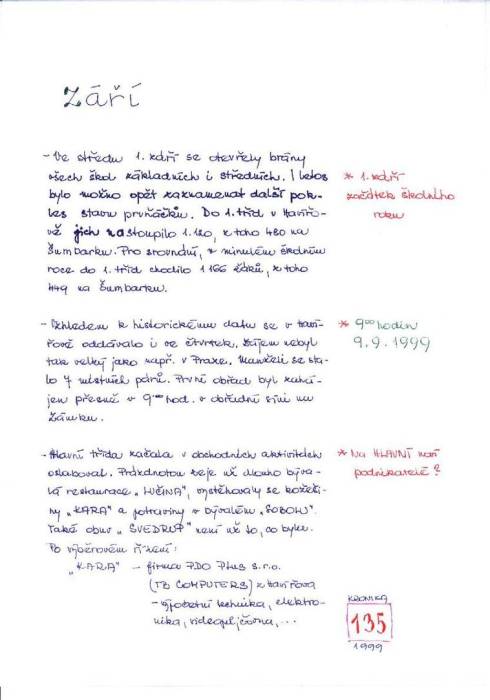 Září
- Ve středu 1. září se otevřely brány
všech škol základních i středních. I letos
bylo možno opět zaznamenat další pok-
les stavu prvňáčků. Do 1. tříd v Havířo-
vě jich nastoupilo 1.120, z toho 480 na
Šumbarku. Pro srovnání, v minulém školním
roce do 1. tříd chodilo 1 166 žáků, z toho
449 na Šumbarku.
* 1. září
začátek školního
roku
- Vzhledem k historickému datu se v Haví-
řově oddávalo i ve čtvrtek. Zájem nebyl
tak velký jako např. v Praze. Manželi se sta-
lo 7 místních párů. První obřad byl zahá-
jen přesně v 9⁰⁰ hod. v obřadní síni na
Zámku.
* 9⁰⁰ hodin
9. 9. 1999
- Hlavní třída začala v obchodních aktivitách
oslabovat. Prázdnotou zeje už dlouho býva-
lá restaurace „LUČINA", vystěhovaly se kožeši-
ny „KARA" a potraviny v bývalém „SOBOW".
Také obuv „SVEDRUP" není už to, co bylo.
Po výběrovém řízení:
„KARA" - firma PDO Plus s.r.o.
(TB COMPUTERS) z Havířova
- výpočetní technika, elektro-
nika, videopůjčovna, ...
* Na HLAVNÍ noví
podnikatelé?
KRONIKA
135
1999